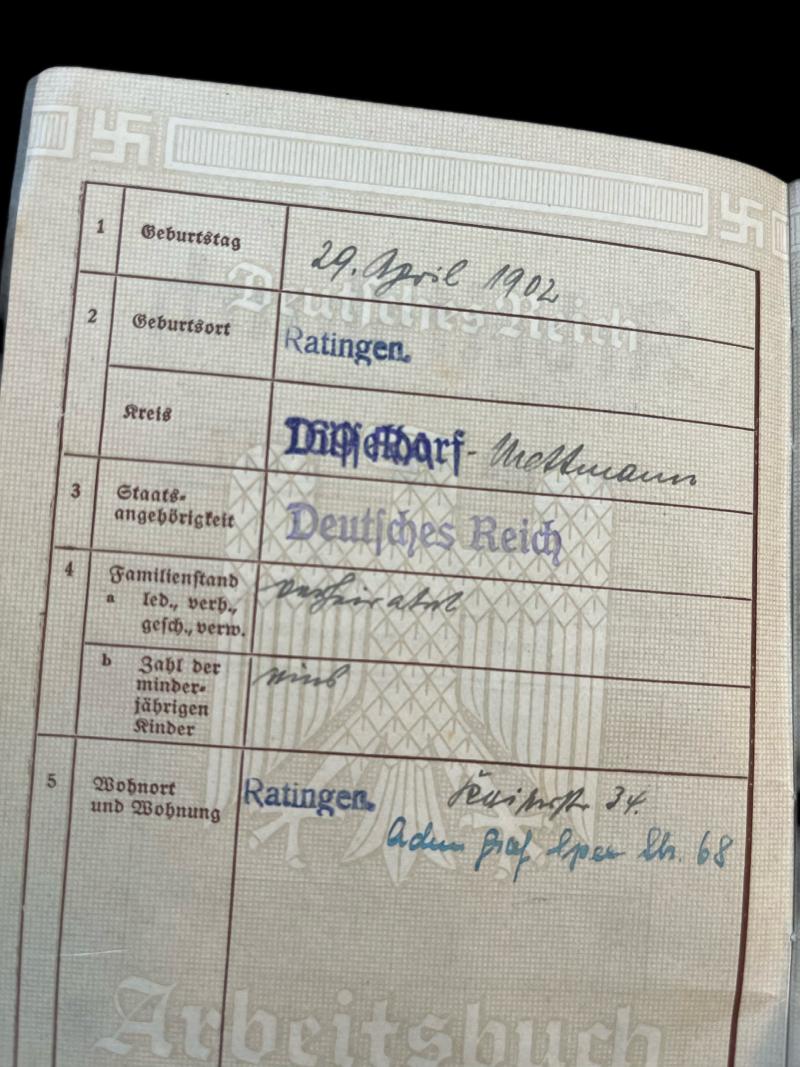 1 Geburtstag 29. April 1902
Deutsches Reich
2 Geburtsort Ratingen.
Kreis Düsseldorf-Mettmann
3 Staats-
angehörigkeit Deutsches Reich
4 Familienstand verheiratet
a led., verh.,
gesch., verw.
b Zahl der eins
minder-
jährigen
Kinder
5 Wohnort Ratingen. 34.
und Wohnung Adm. Graf Spee Str. 68
Arbeitsbuch